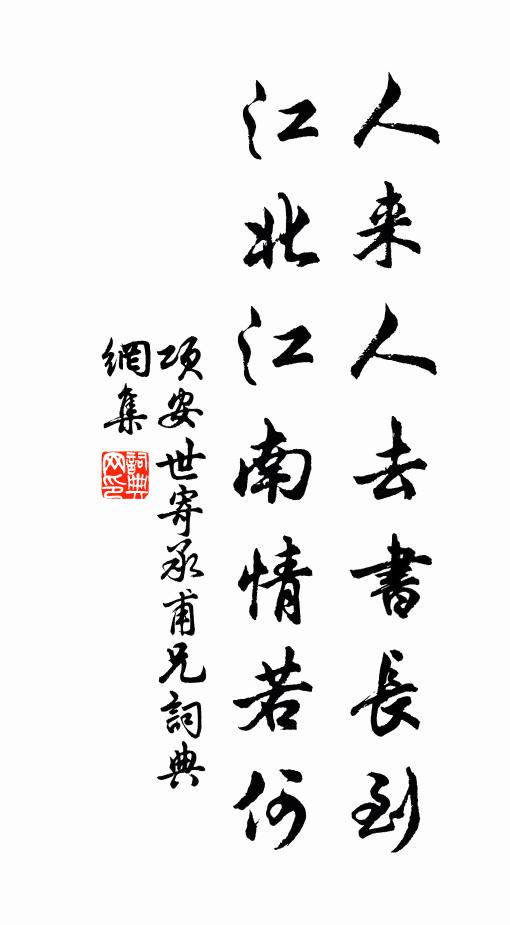 人来人去書長到
江北江南情若何
項安世寄承甫兄詞典
網集
詞典網印